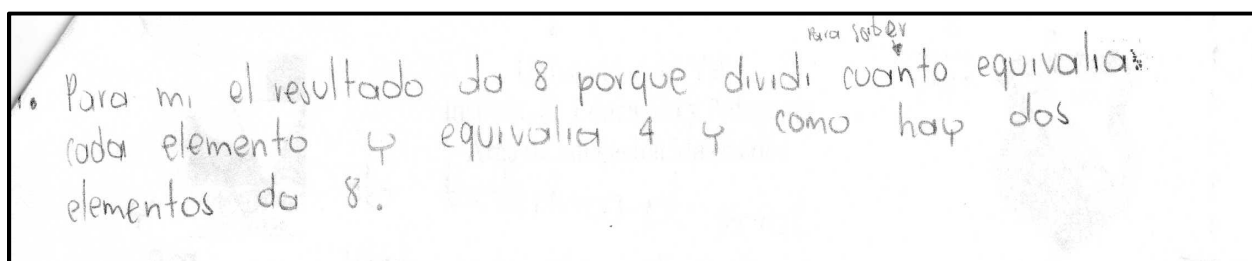 Para saber
1. Para mi el resultado da 8 porque dividi cuanto equivalia
cada elemento y equivalia 4 y como hay dos
elementos da 8.